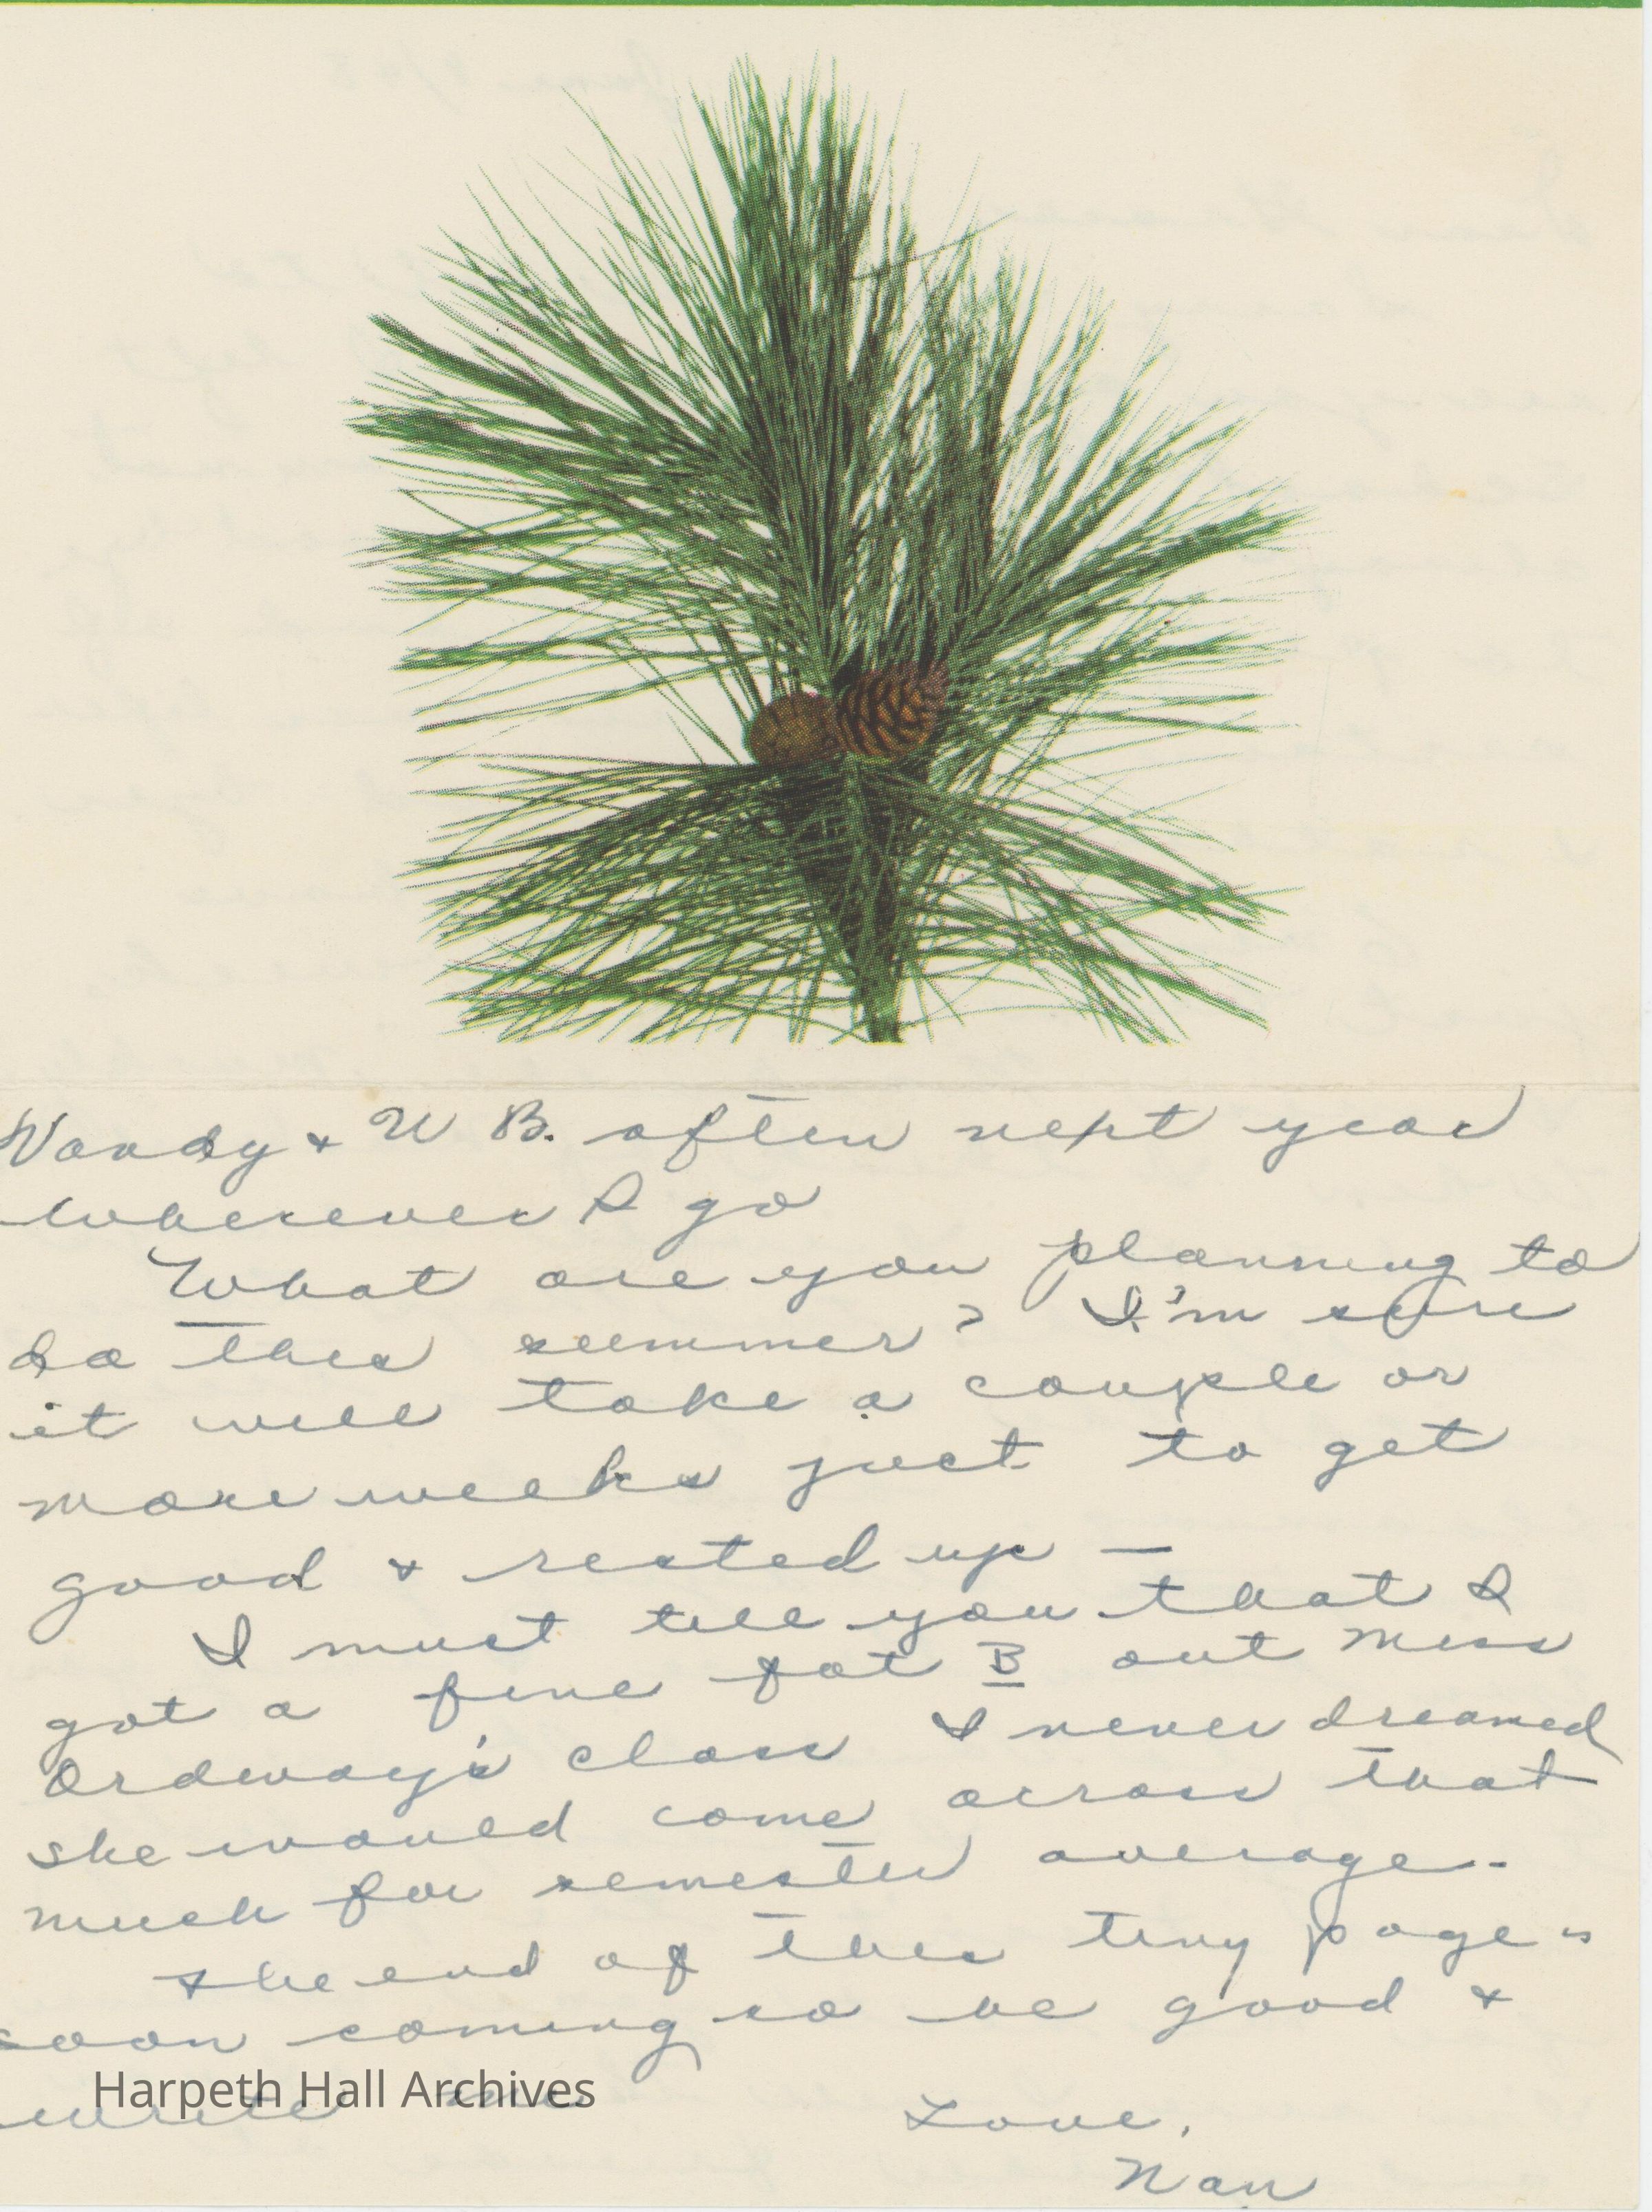 Vandy & W B. often next year
wherever I go
What are you planning to
do this summer? I'm sure
it will take a couple or
more weeks just to get
good & rested up —
I must tell you that I
got a fine fat B out Miss
Ordway's class I never dreamed
she would come across that
much for semester average.
The end of this tiny page is
soon coming so be good &
write me
Harpeth Hall Archives
Love,
Nan